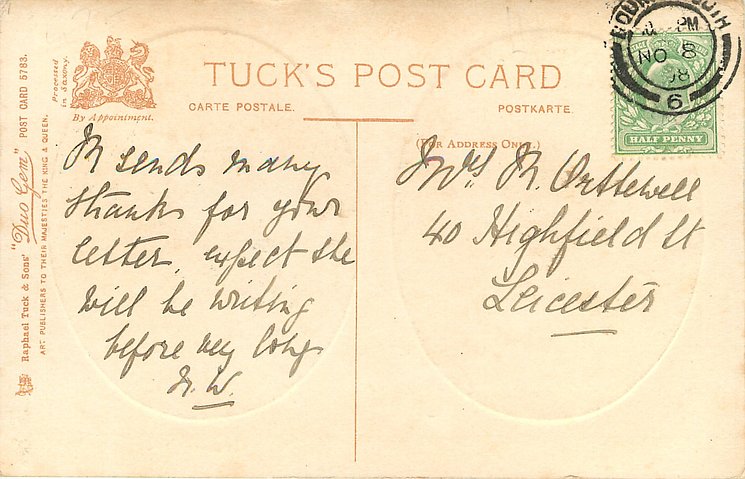 Raphael Tuck & Sons' "Duo Gem" POST CARD 5783.
ART PUBLISHERS TO THEIR MAJESTIES THE KING & QUEEN.
Processed
in Saxony.
By Appointment.
TUCK'S POST CARD
CARTE POSTALE.
POSTKARTE.
(FOR ADDRESS ONLY.)
sends many
thanks for your
letter, expect she
will be writing
before very long
W.
Mrs
40 Highfield St
Leicester
PM
NO 8
08
6
HALF PENNY